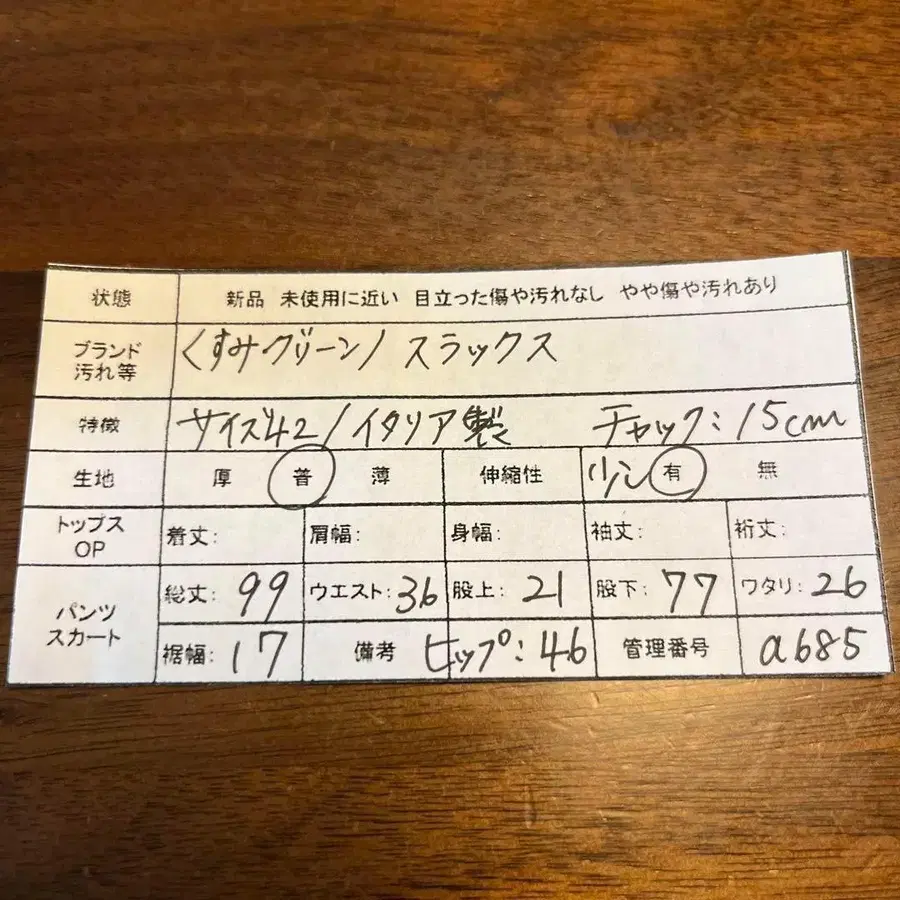 状態 新品 未使用に近い 目立った傷や汚れなし やや傷や汚れあり
ブランド 汚れ等 くすみグリーン/スラックス
特徴 サイズ42/イタリア製 チャック:15cm
生地 厚 普 薄 伸縮性 少し 有 無
トップス OP 着丈: 肩幅: 身幅: 袖丈: 裄丈:
パンツ スカート 総丈:99 ウエスト:36 股上:21 股下:77 ワタリ:26
裾幅:17 備考 ヒップ:46 管理番号 a685